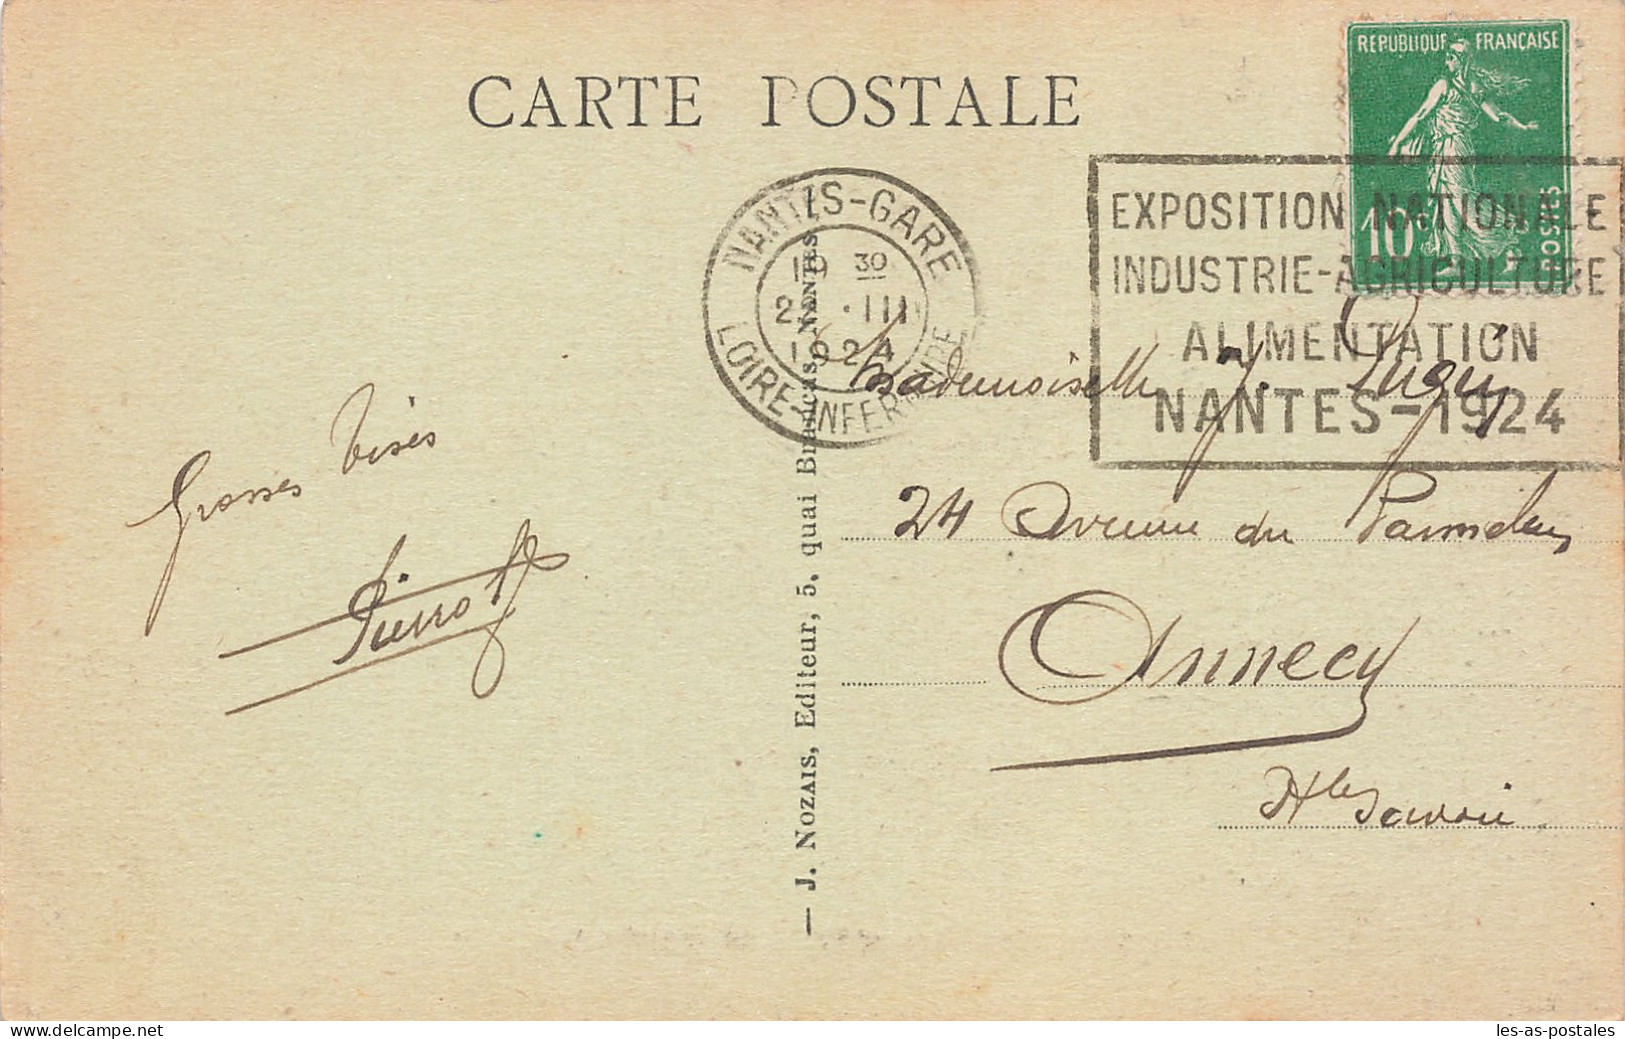 CARTE POSTALE
REPUBLIQUE FRANÇAISE
10c
POSTES
NANTES-GARE
30
III
1924
LOIRE-INFERIEURE
EXPOSITION NATIONALE
INDUSTRIE-AGRICULTURE
ALIMENTATION
NANTES-1924
Grosses bises
Pierrot
— J. NOZAIS, Editeur, 5, quai Brancas, NANTES
Mademoiselle J.
24 Avenue du Parmelan
Annecy
Hte Savoie
delcampe.net
les-as-postales